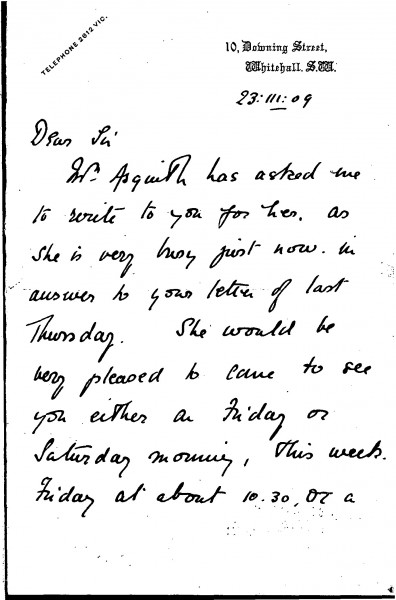 TELEPHONE 2812 VIC.
10, Downing Street,
Whitehall. S.W.
23: III: 09
Dear Sir
Mrs Asquith has asked me
to write to you for her, as
she is very busy just now. in
answer to your letter of last
Thursday. She would be
very pleased to come to see
you either on Friday or
Saturday morning, this week.
Friday at about 10.30, or a